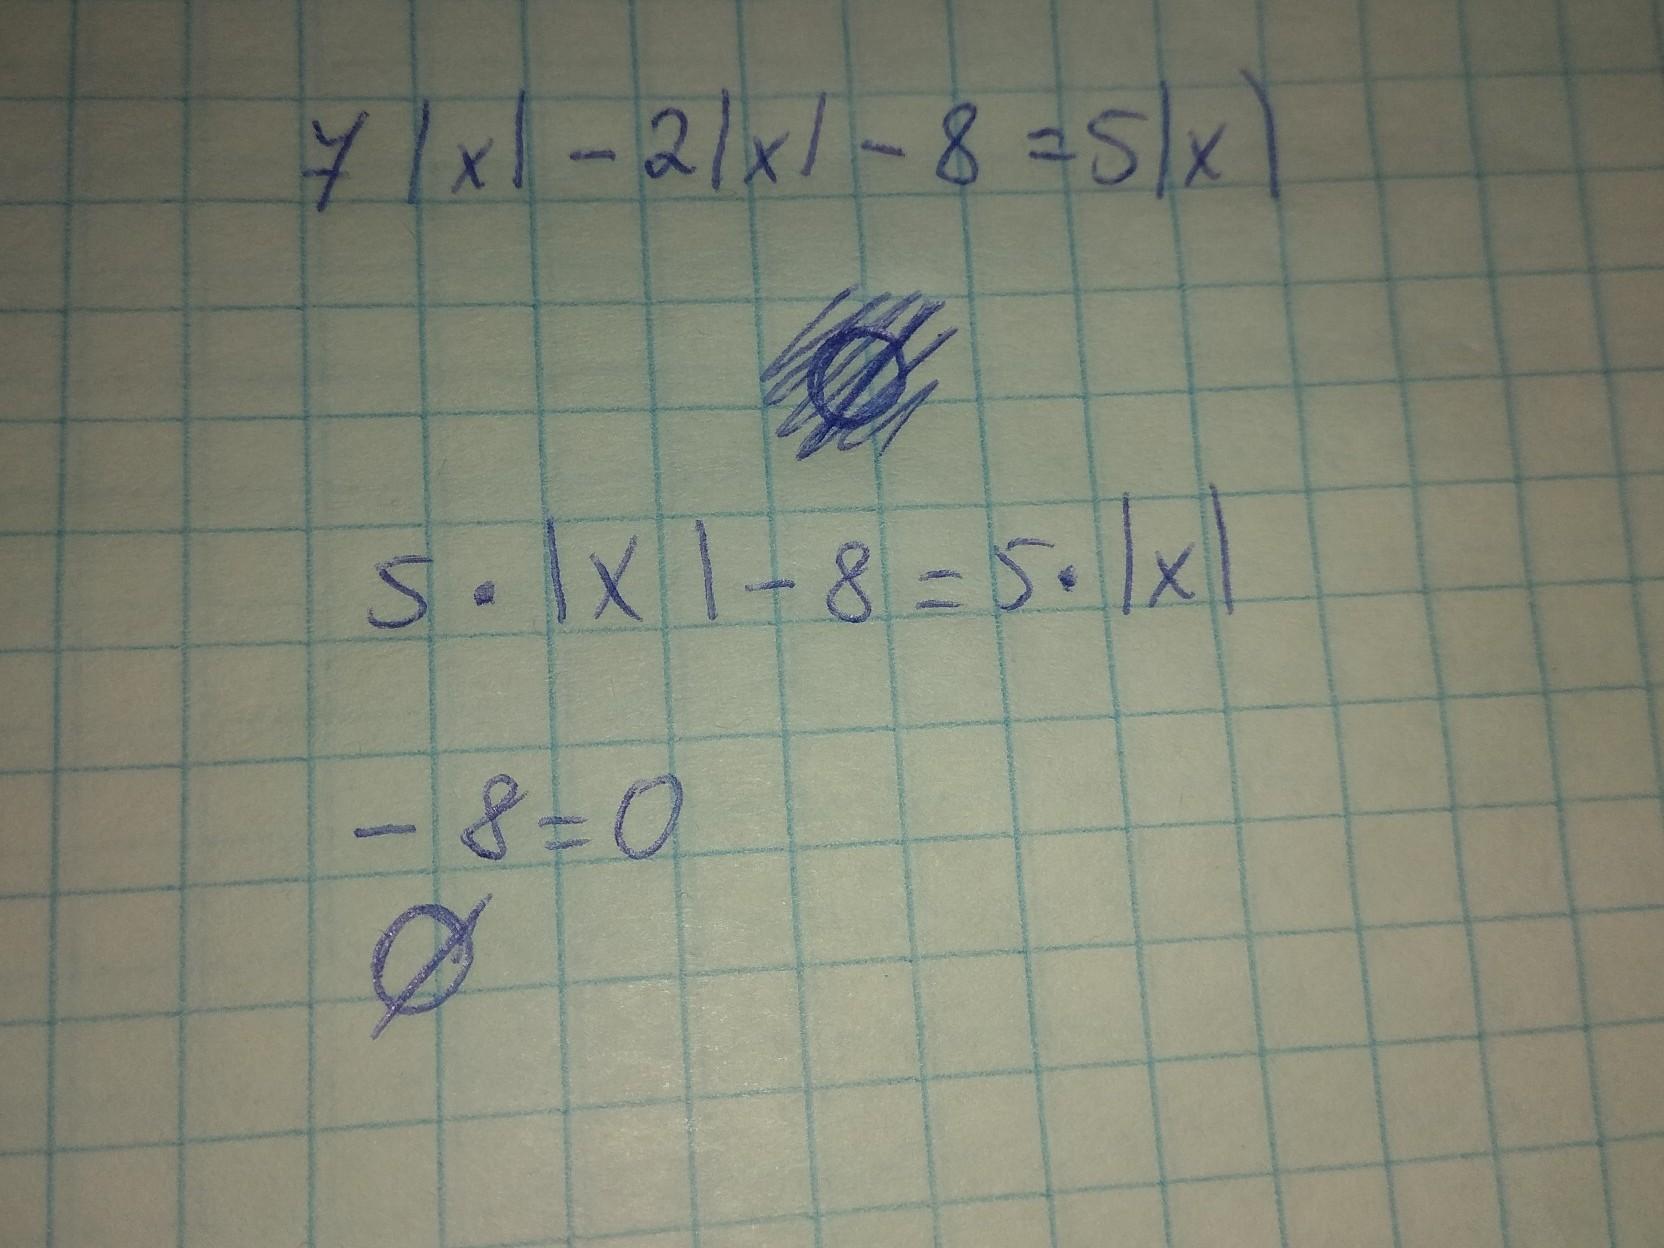 7|x| - 2|x| - 8 = 5|x|
5 · |x| - 8 = 5 · |x|
- 8 = 0
∅